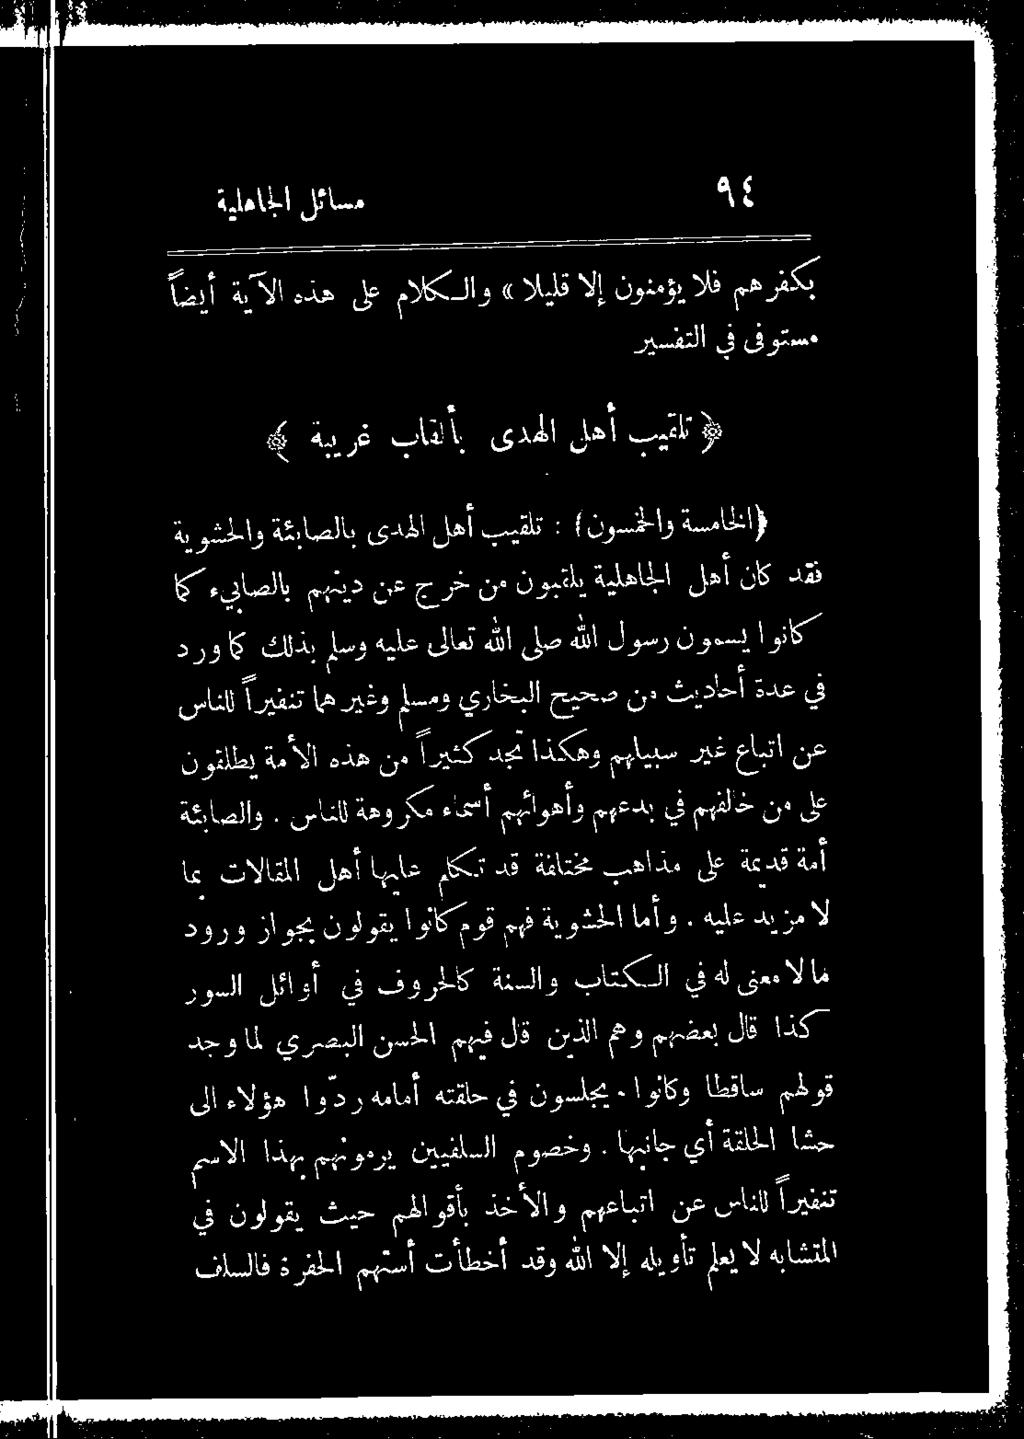 ٩٤ مسائل الجاهلية
بكفرهم فلا يؤمنون إلا قليلا » والكلام على هذه الآية أيضاً
مستوفى في التفسير
﴿ تلقيب أهل الهدى بألقاب غريبة ﴾
(الخامسة والخمسون) : تلقيب أهل الهدى بالصابئة والحشوية
فقد كان أهل الجاهلية يلقبون من خرج عن دينهم بالصابيء كما
كانوا يسمون رسول الله صلى الله تعالى عليه وسلم بذلك كما ورد
في عدة أحاديث من صحيح البخاري ومسلم وغيرهما تنفيراً للناس
عن اتباع غير سبيلهم وهكذا تجد كثيراً من هذه الأمة يطلقون
على من خالفهم في بدعهم وأهوائهم أسماء مكروهة للناس . والصابئة
أمة قديمة على مذاهب مختلفة قد تكلم عليها أهل المقالات بما
لا مزيد عليه . وأما الحشوية فهم قوم كانوا يقولون بجواز ورود
مالا معنى له في الكتاب والسنة كالحروف في أوائل السور
كذا قال بعضهم وهم الذين قال فيهم الحسن البصري لما وجد
قولهم ساقطا وكانوا يجلسون في حلقته أمامه ردّوا هؤلاء الى
حشا الحلقة أي جانبها . وخصوم السلفيين يرمونهم بهذا الاسم
تنفيراً للناس عن اتباعهم والأخذ بأقوالهم حيث يقولون في
المتشابه لا يعلم تأويله إلا الله وقد أخطأت أستهم الحفرة فالسلف